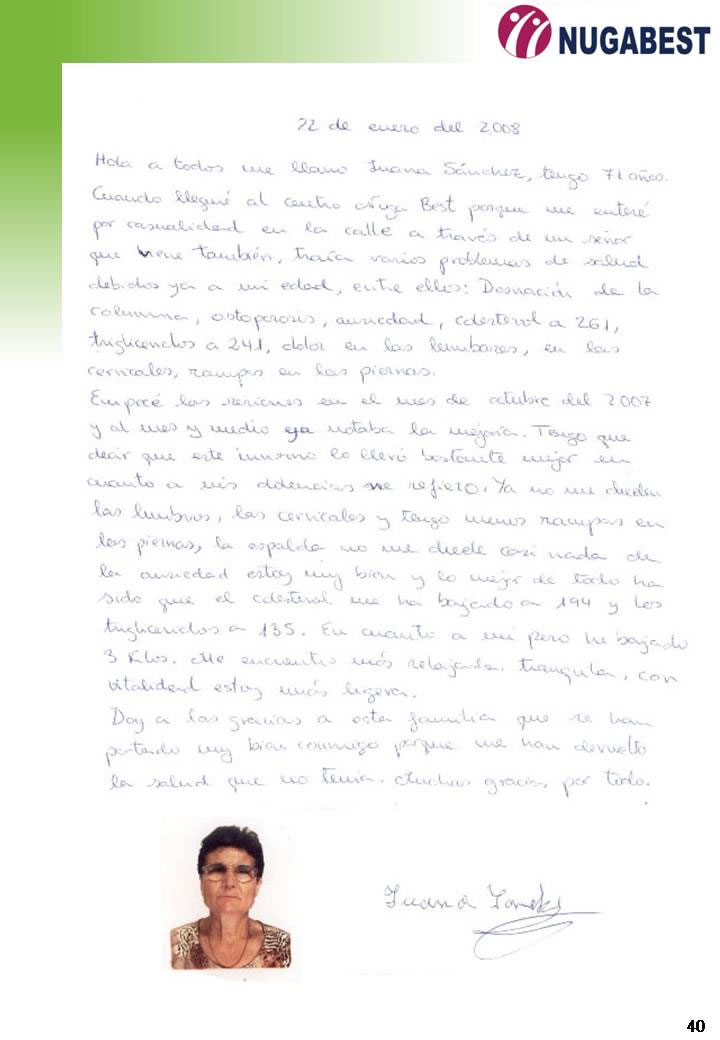 NUGABEST
22 de enero del 2008
Hola a todos me llamo Juana Sánchez, tengo 71 años.
Cuando llegué al centro Nuga Best porque me enteré
por casualidad en la calle a través de un señor
que viene también, traía varios problemas de salud
debidos ya a mi edad, entre ellos: Desviación de la
columna, ostoporosis, ansiedad, colesterol a 261,
trigliceridos a 241, dolor en las lumbares, en las
cervicales, rampas en las piernas.
Empecé las sesiones en el mes de octubre del 2007
y al mes y medio ya notaba la mejoría. Tengo que
decir que este invierno lo llevo bastante mejor en
cuanto a mis dolencias me refiero. Ya no me duelen
las lumbares, las cervicales y tengo menos rampas en
las piernas, la espalda no me duele casi nada de
la ansiedad estoy muy bien y lo mejor de todo ha
sido que el colesterol me ha bajado a 194 y los
trigliceridos a 135. En cuanto a mi peso he bajado
3 Kilos. Me encuentro más relajada, tranquila, con
vitalidad estoy más ligera.
Doy a las gracias a esta familia que se han
portado muy bien conmigo porque me han devuelto
la salud que no tenía. Muchas gracias, por todo.
Juana
40